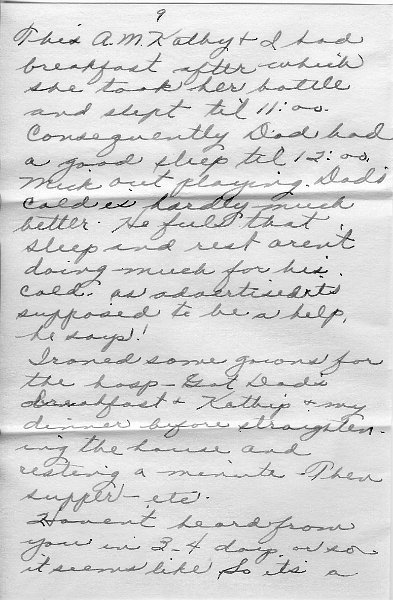 9
This A.M. Kathy & I had
breakfast after which
she took her bottle
and slept til 11:00.
Consequently Dad had
a good sleep til 12:00.
Mick out playing. Dad's
cold is hardly much
better. He feels that
sleep and rest aren't
doing much for his
cold. as advertised it's
supposed to be a help,
he says!
Ironed some gowns for
the hosp - Got Dad's
breakfast & Kathy's & my
dinner before straighten-
ing the house and
resting a minute. Then
supper - etc.
Haven't heard from
you in 3-4 days or so
it seems like So it's a